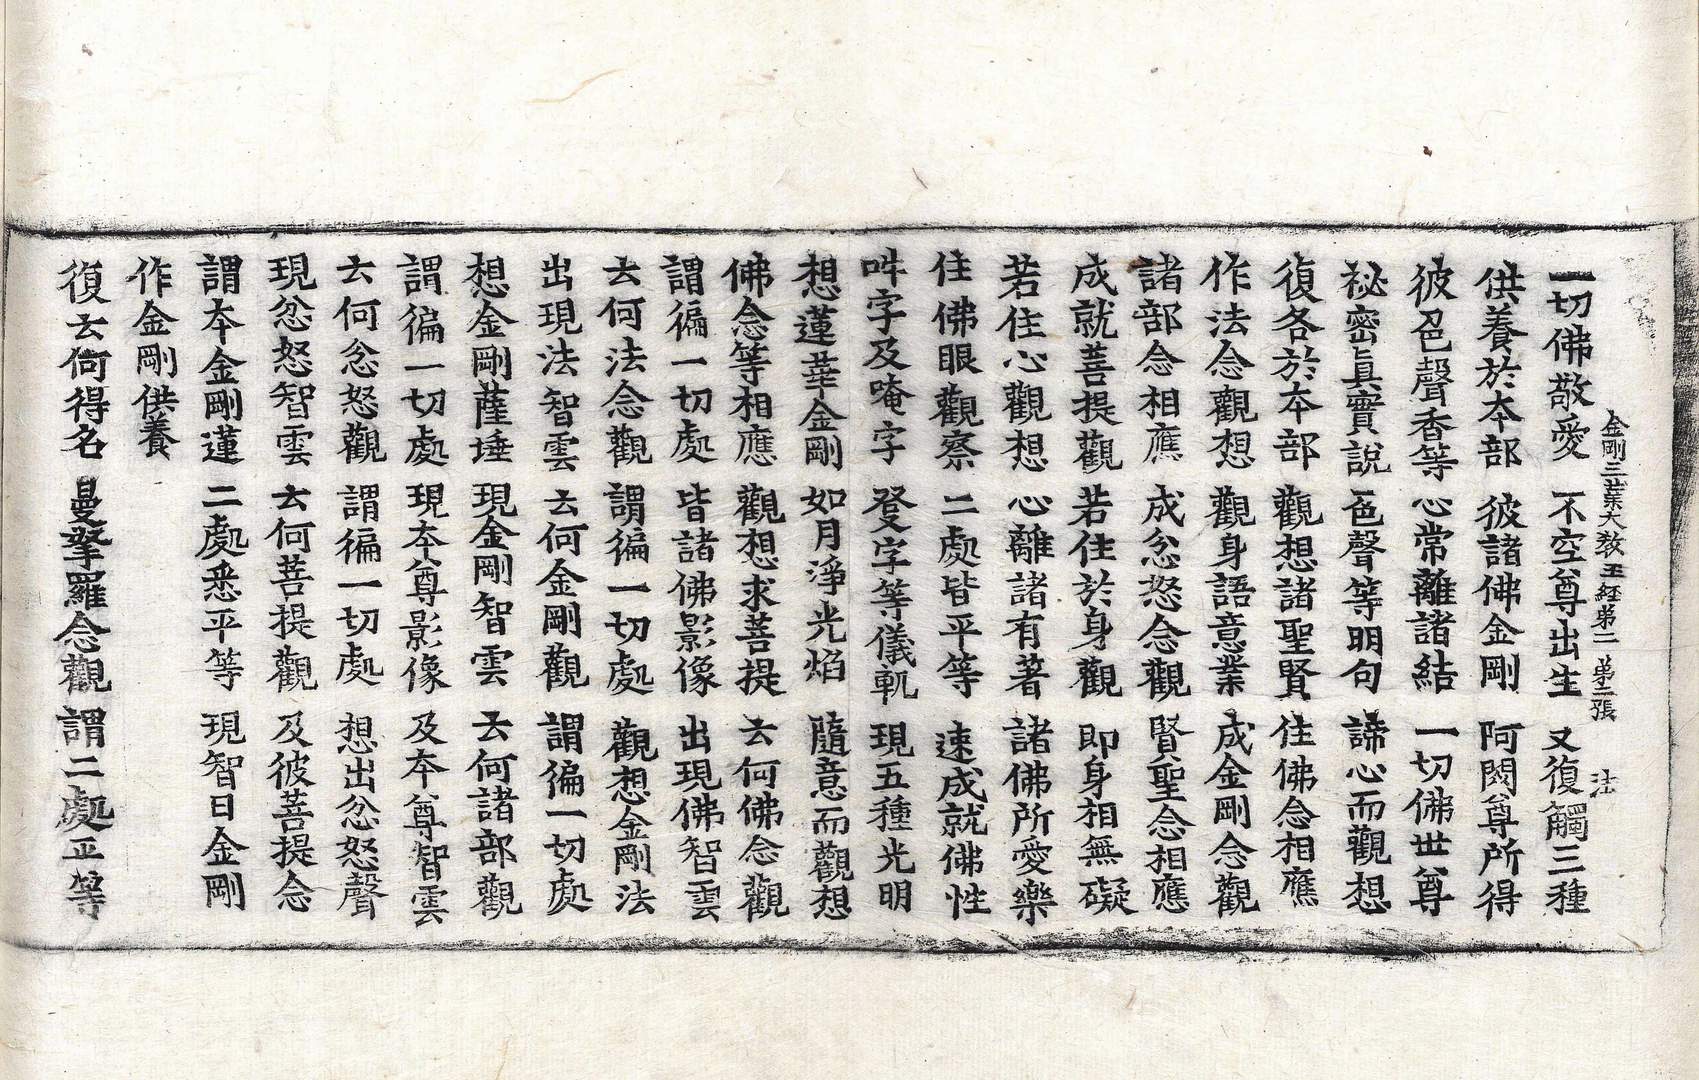 金剛三業大教王経第二 第二張 法
一切佛敬愛 不空尊出生 又復觸三種
供養於本部 彼諸佛金剛 阿閦尊所得
彼色聲香等 心常離諸結 一切佛世尊
祕密眞實說 色聲等明句 諦心而觀想
復各於本部 觀想諸聖賢 住佛念相應
作法念觀想 觀身語意業 成金剛念觀
諸部念相應 成忿怒念觀 賢聖念相應
成就菩提觀 若住於身觀 即身相無礙
若住心觀想 心離諸有著 諸佛所愛樂
住佛眼觀察 二處皆平等 速成就佛性
吽字及唵字 發字等儀軌 現五種光明
想蓮華金剛 如月淨光焰 隨意而觀想
佛念等相應 觀想求菩提 云何佛念觀
謂徧一切處 皆諸佛影像 出現佛智雲
云何法念觀 謂徧一切處 觀想金剛法
出現法智雲 云何金剛觀 謂徧一切處
想金剛薩埵 現金剛智雲 云何諸部觀
謂徧一切處 現本尊影像 及本尊智雲
云何忿怒觀 謂徧一切處 想出忿怒聲
現忿怒智雲 云何菩提觀 及彼菩提念
謂本金剛蓮 二處悉平等 現智日金剛
作金剛供養
復云何得名 曼拏羅念觀 謂二處平等